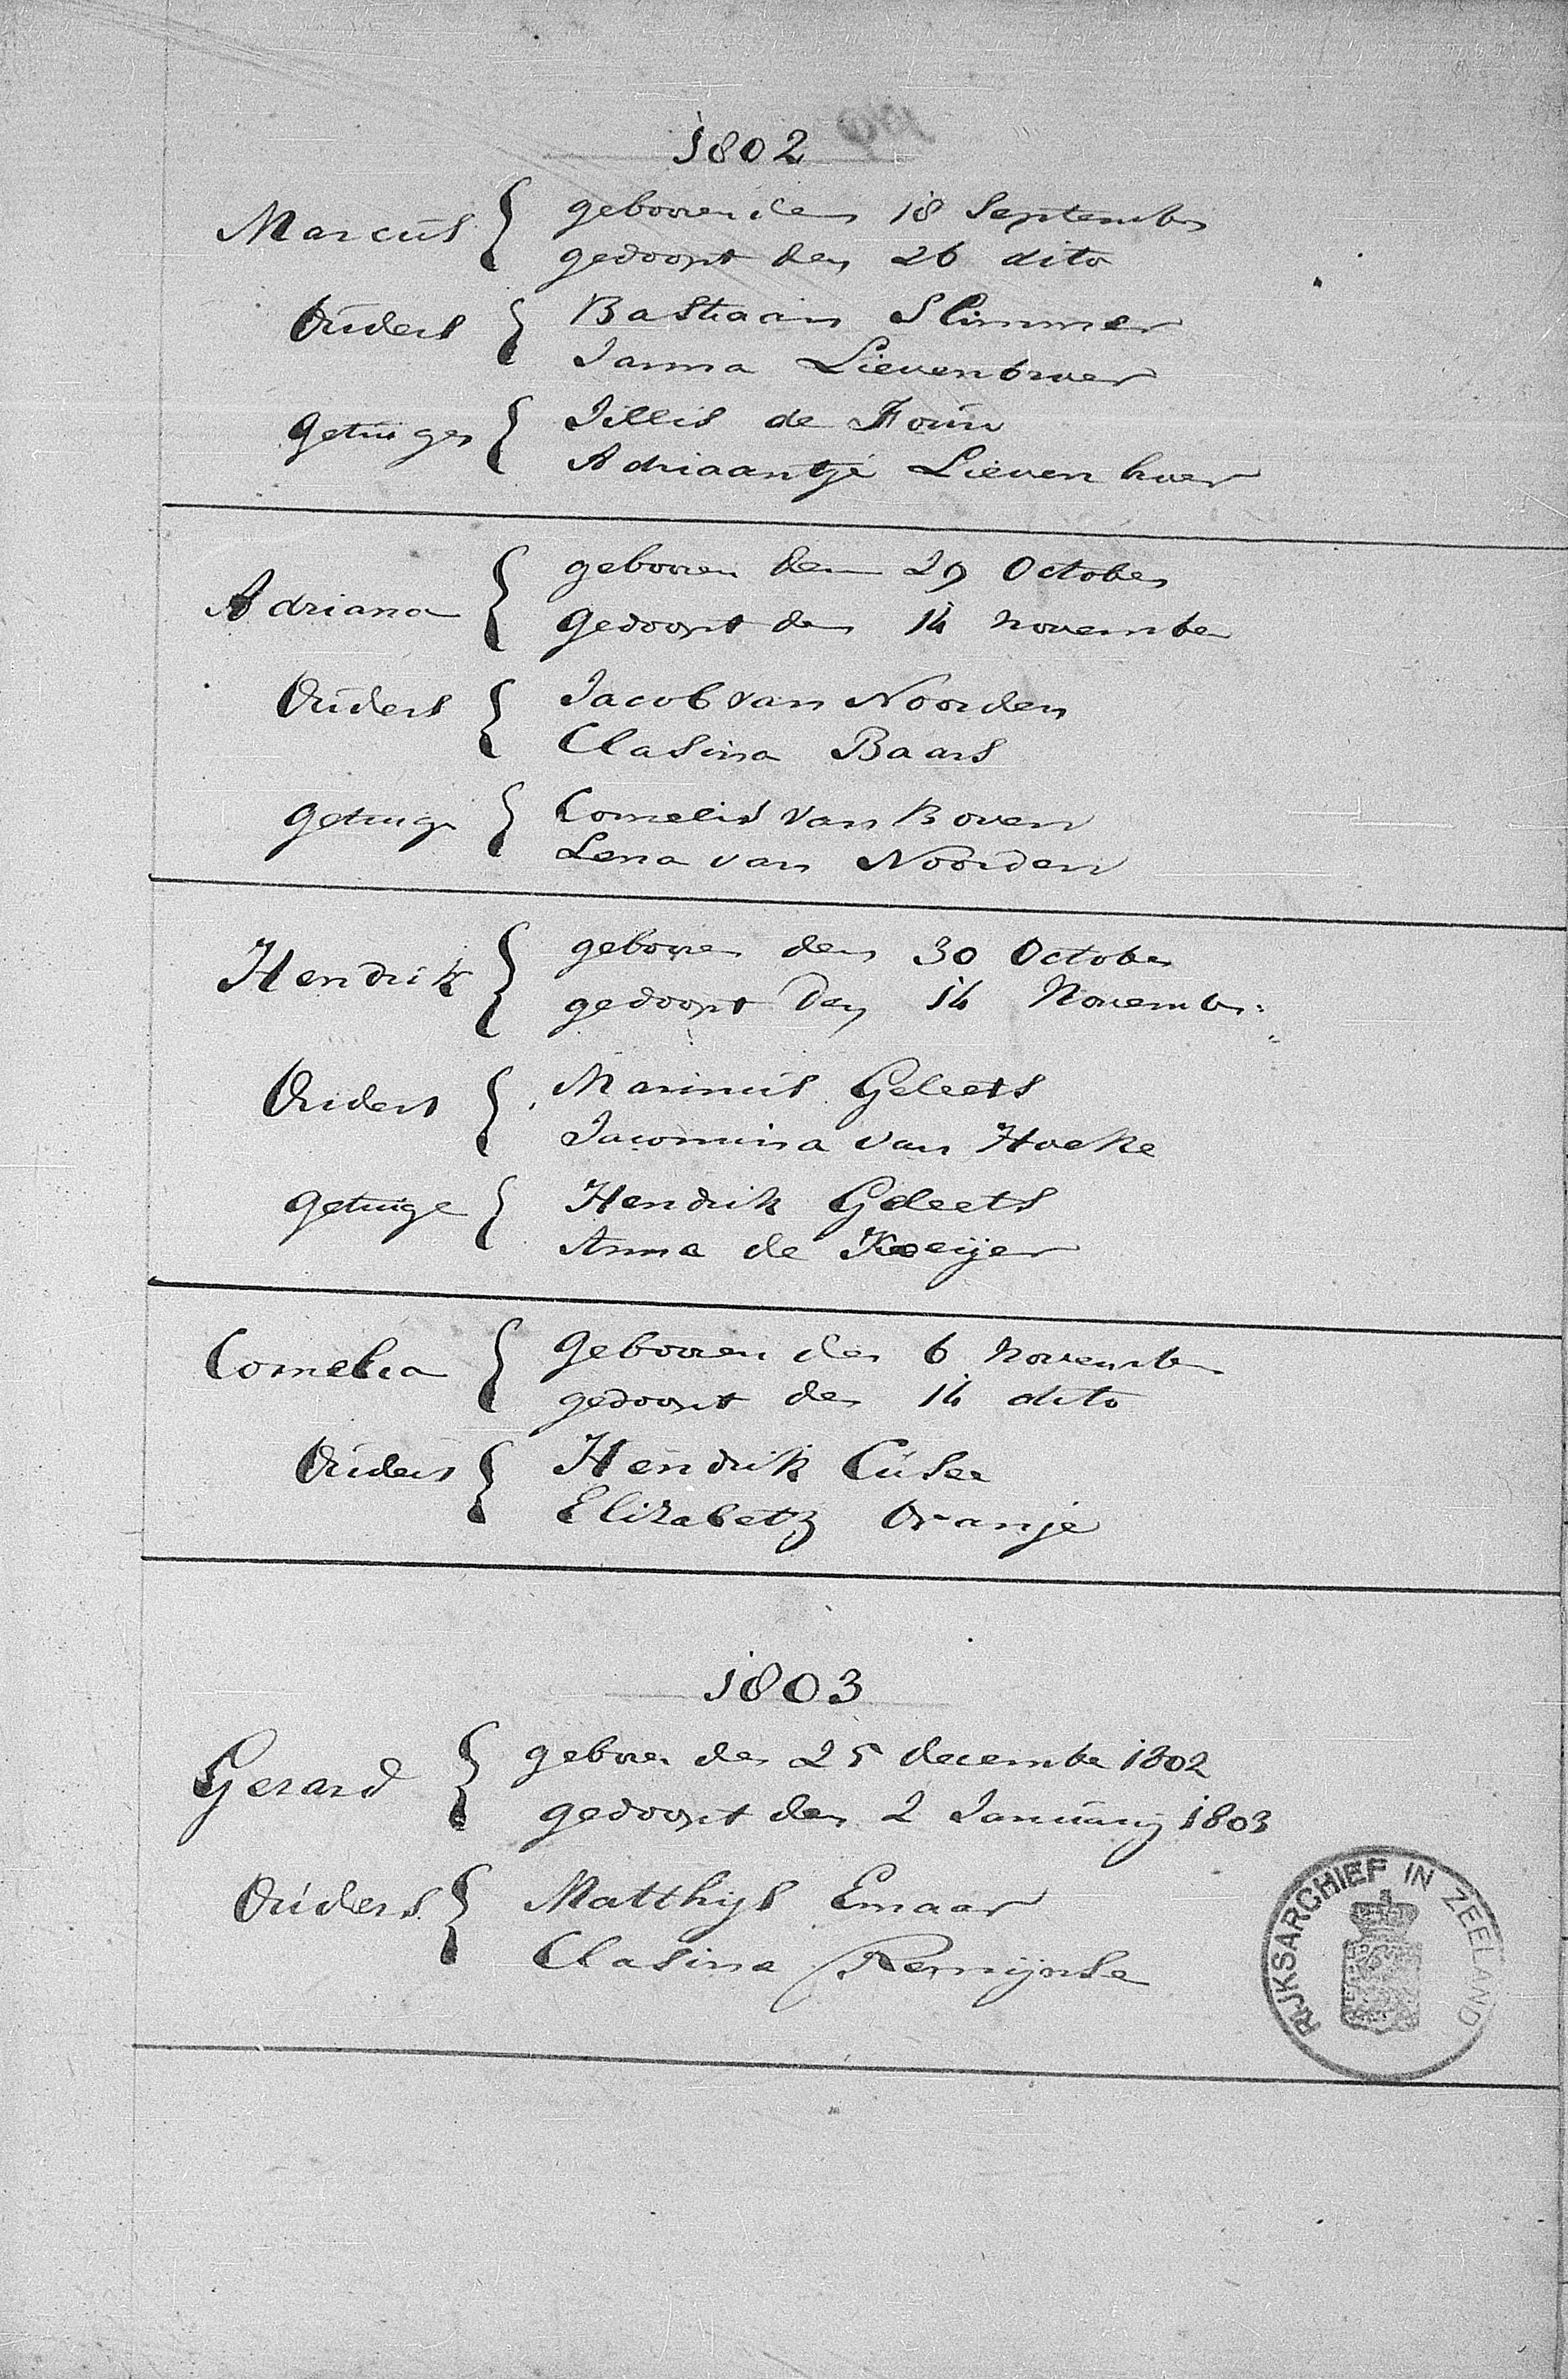 1802
Marcus { gebooren den 18 September
gedoopt den 26 dito
Ouders { Bastiaan Slimmer
Janna Lievenbroer
getuigen { Jillis de
Adriaantje Lieven broer
Adriana { gebooren den 29 October
Gedoopt den 14 november
Ouders { Jacob van Noorden
Clasina Baars
getuige { Cornelis van Boven
Lena van Noorden
Hendrik { gebooren den 30 October
gedoopt den 14 Novemb:
Ouders { Marinus Geleets
Jacomina van Hoeke
getuige { Hendrik Geleets
Anna de Koeijer
Cornelia { Gebooren den 6 november
gedoopt den 14 dito
Ouders { Hendrik Cúsee
Elizabeth Oranje
1803
Gerard { geboren den 25 december 1802
gedoopt den 2 January 1803
Ouders { Matthijs Emaar
Clasina Remijnse
RIJKSARCHIEF IN ZEELAND